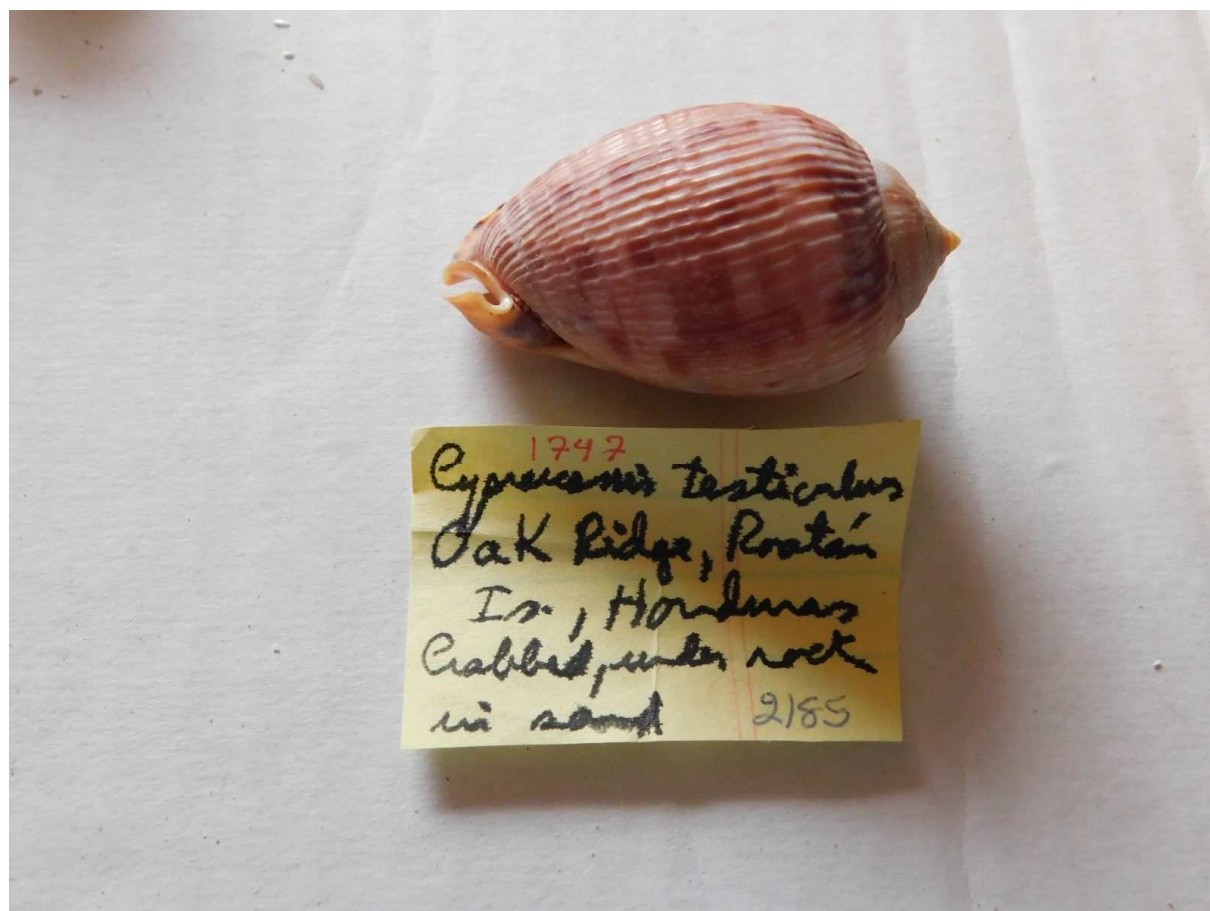 1747
Cypraecassis testiculus
Oak Ridge, Roatán
Is., Honduras
Crabbed, under rock
in sand 2185